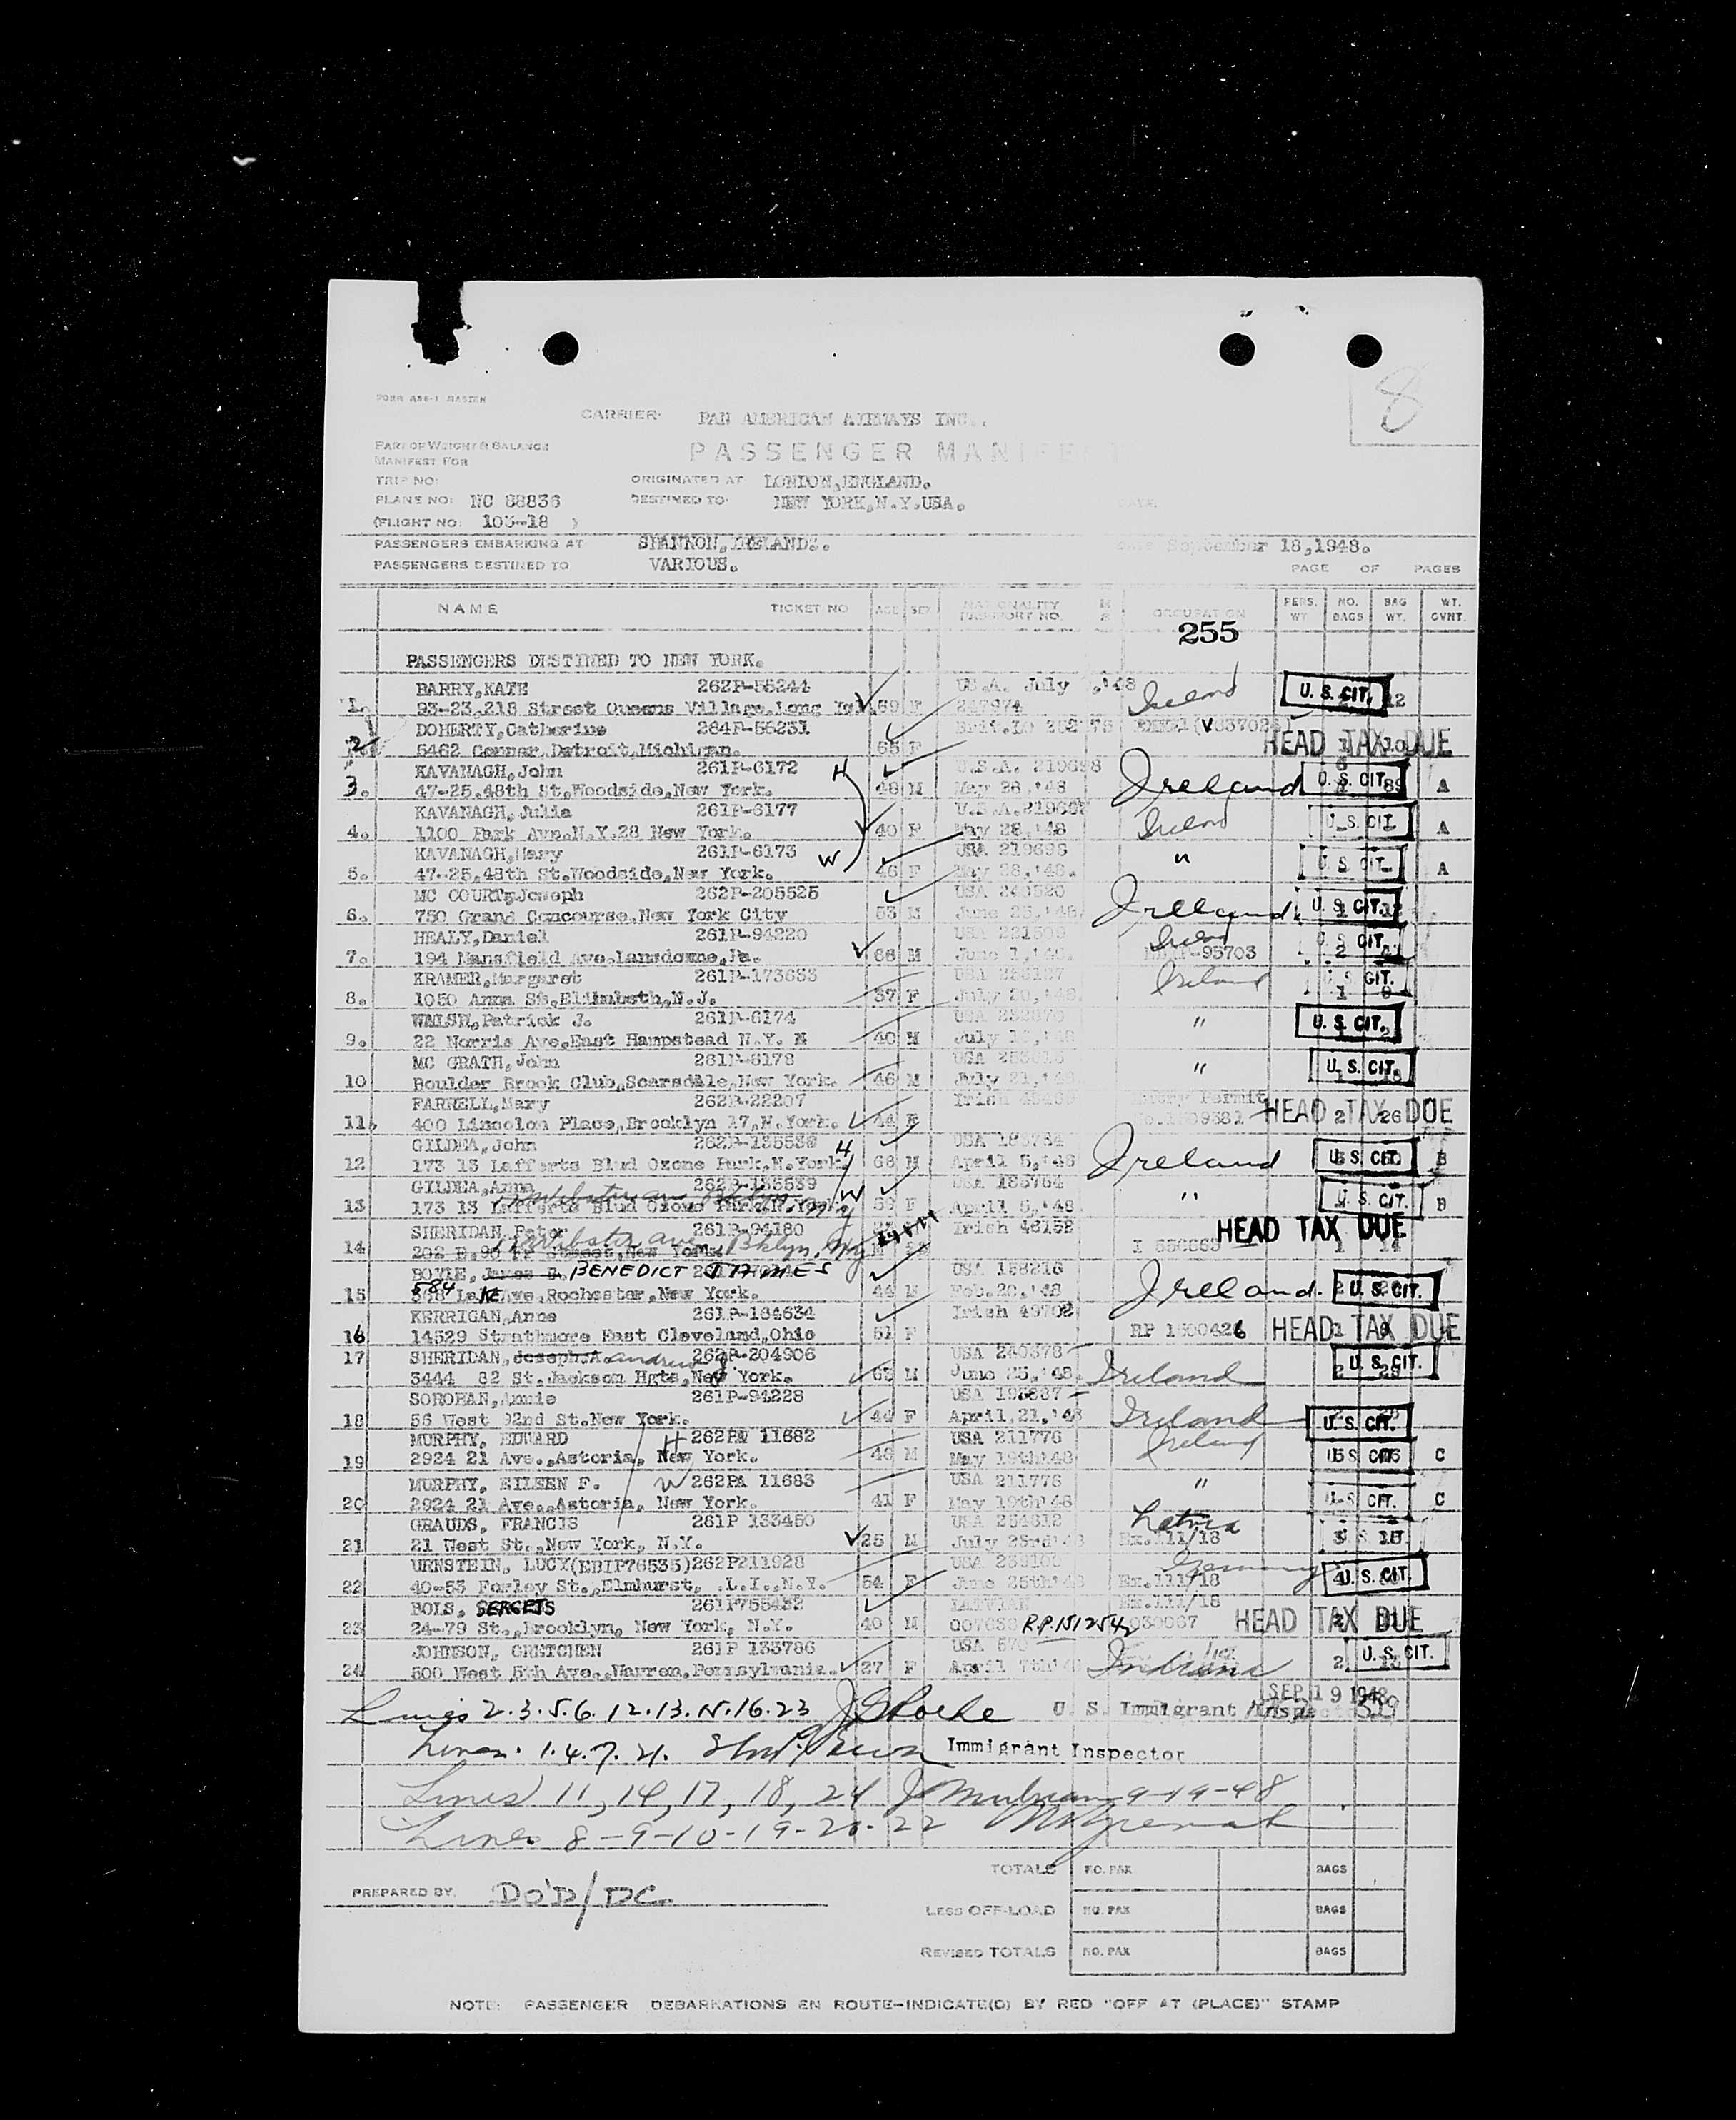 8
FORM A86-1 MASTER
CARRIER: PAN AMERICAN AIRWAYS INC..
PART OF WEIGHT & BALANCE
MANIFEST FOR
PASSENGER MANIFEST
TRIP NO:
ORIGINATED AT LONDON,ENGLAND.
PLANE NO: NC 88836
DESTINED TO: NEW YORK,N.Y.USA.
(FLIGHT NO: 103-18 )
PASSENGERS EMBARKING AT SHANNON, IRELAND..
September 18,1948.
PASSENGERS DESTINED TO VARIOUS.
PAGE OF PAGES
NAME TICKET NO AGE SEX NATIONALITY PASSPORT NO. OCCUPATION PERS. WT NO. BAGS BAG WT. WT. GVNT.
255
PASSENGERS DESTINED TO NEW YORK.
BARRY,KATE 262P-55244 U.S.A. July '48 Ireland U. S. CIT. 12
1. 93-23,218 Street Queens Village,Long 69 F 247974
DOHERTY,Catherine 264P-56231
2 5462 Conner,Detroit,Michigan. 65 F HEAD TAX DUE
KAVANAGH,John 261P-6172 H U.S.A. 219698
3. 47-25,48th St.Woodside,New York. 48 M May 28,'48 Ireland U. S. CIT. A
KAVANAGH,Julia 261P-6177
4. 1100 Park Ave.N.Y.28 New York. 40 F May 28,'48 Ireland U. S. CIT. A
KAVANAGH,Mary 261P-6173 W USA 219696
5. 47-25,48th St.Woodside,New York. 46 F May 28,'48. " U. S. CIT. A
MC COURT,Joseph 262P-205525
6. 750 Grand Concourse,New York City 53 M June 25,'48 Ireland U. S. CIT.
HEALY,Daniel 261P-94220 Ireland
7. 194 Mansfield Ave.Lansdowne,Pa. 66 M June 1,'48. -95703 U. S. CIT.
KRAMER,Margaret 261P-173653 Ireland
8. 1050 Anna St.Elizabeth,N.J. 37 F July 20,'48 U. S. CIT.
WALSH,Patrick J. 261P-6174
9. 22 Norris Ave.East Hampstead N.Y. 40 M July '48 " U. S. CIT.
MC GRATH,John 261P-6178 USA
10 Boulder Brook Club,Scarsdale,New York. 46 M July 21,'48 " U. S. CIT.
FARRELL,Mary 262P-22207 Irish Entry Permit
11. 400 Lincoln Place,Brooklyn 17,N.York. 44 F HEAD TAX DUE
GILDEA,John 262P-135539 H USA 185764
12 173 15 Lafferts Blvd Ozone Park,N.York. 68 M April 5,'48 Ireland U. S. CIT. B
GILDEA,Anna 262P-135539 W USA 185764
13 173 15 Lafferts Blud Ozone Park,N.York. 59 F April 5,'48 " U. S. CIT. B
SHERIDAN,Peter 261P-94180 Irish 46152 HEAD TAX DUE
14 202 E.96 Street,New York. Webster ave Bklyn. ny
BOYLE, James B. BENEDICT JAMES USA 158216
15 584 LAKE Ave.Rochester,New York. 44 M Feb.20,'48 Ireland. U. S. CIT.
KERRIGAN,Anne 261P-184634 Irish 49702
16 14529 Strathmore East Cleveland,Ohio 51 F RP 1500426 HEAD TAX DUE
17 SHERIDAN,Joseph.A andrew J 262P-204906 USA 240378
3444 82 St.Jackson Hgts,New York. 63 M June 25,'48. Ireland U. S. CIT.
SOROHAN,Annie 261P-94228 USA 195867
18 56 West 92nd St.New York. 44 F April,21,'48 Ireland U. S. CIT.
MURPHY, EDWARD H 262PA 11682 USA 211776 Ireland
19 2924 21 Ave.,Astoria, New York. 46 M May 19th'48 U. S. CIT. C
MURPHY, EILEEN F. W 262PA 11683 USA 211776 "
20 2924 21 Ave.,Astoria, New York. 41 F May 19th'48 U. S. CIT. C
GRAUDS, FRANCIS 261P 133450 USA 254612 Latvia
21 21 West St.,New York, N.Y. 25 M July 23rd'48 Ex.111/18
URNSTEIN, LUCY(EBIP76535)262P211928 USA Germany
22 40-53 Forley St.,Elmhurst, .L.I.,N.Y. 54 F June 25th'48 Ex.111/18 U. S. CIT.
BOLS, SERGEJS 261P755452 LATVIAN Ex.111/18
23 24-79 St.,Brooklyn, New York, N.Y. 40 M R.P.151254 HEAD TAX DUE
JOHNSON, GRETCHEN 261P 133786 USA
24 500 West 5th Ave.,Warren,Pennsylvania. 27 F April 7th'48 Indiana U. S. CIT.
Lines 2.3.5.6.12.13.15.16.23 J Roche U. S. Immigrant Inspector SEP 19 1948
Lines. 1.4.7.21. Immigrant Inspector
Lines 11,14,17,18,24 9-19-48
Lines 8-9-10-19-20-22
TOTALS NO. PAX BAGS
PREPARED BY. DO'D/DC.
LESS OFF-LOAD NO. PAX BAGS
REVISED TOTALS NO. PAX BAGS
NOTE: PASSENGER DEBARKATIONS EN ROUTE-INDICATE(D) BY RED "OFF AT (PLACE)" STAMP